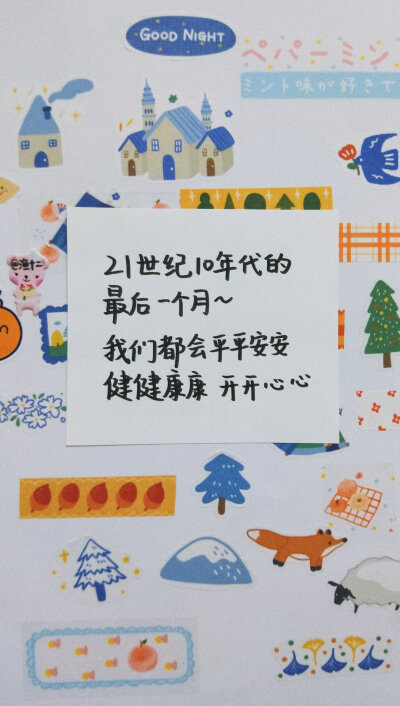 GOOD NIGHT
ペパーミン
ミント味が好きで
@渔十二
21世纪10年代的
最后一个月~
我们都会平平安安
健健康康 开开心心